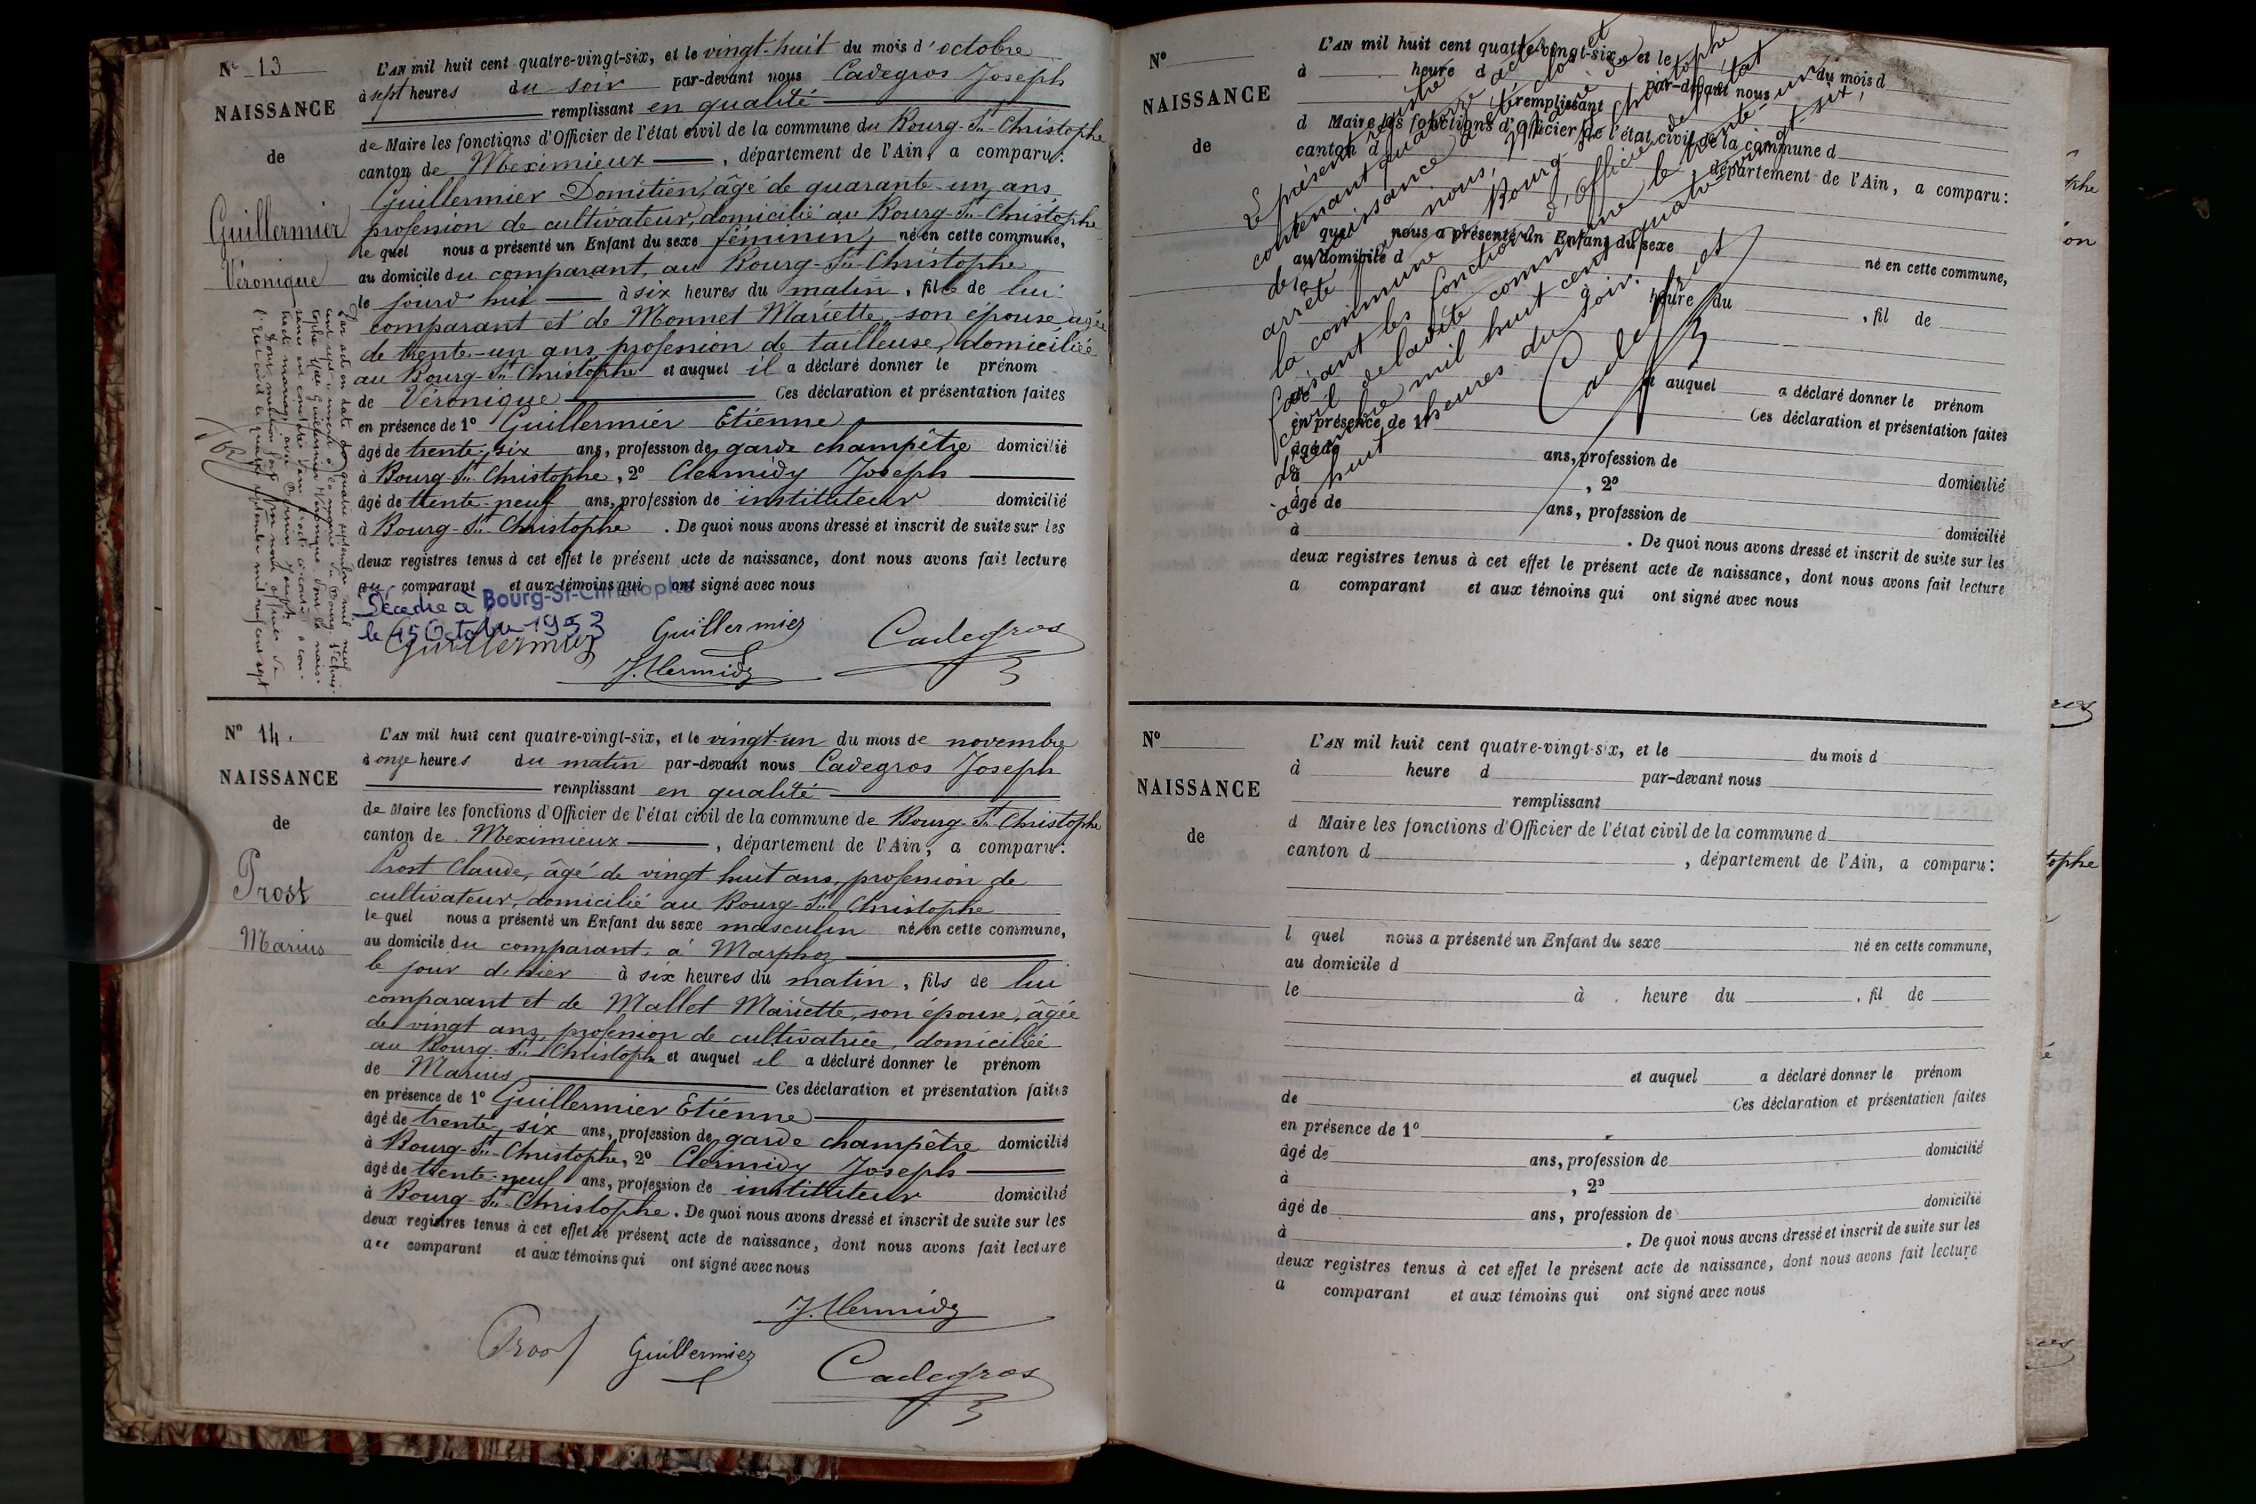 Nº 13
NAISSANCE
de
Guillermier
Véronique
L'AN mil huit cent quatre-vingt-six, et le vingt-huit du mois d'octobre
à sept heures du soir par-devant nous Cadegros Joseph
remplissant en qualité
de Maire les fonctions d'Officier de l'état civil de la commune du Bourg-St-Christophe
canton de Meximieux, département de l'Ain, a comparu:
Guillermier Domitien, âgé de quarante-un ans
profession de cultivateur, domicilié au Bourg-St-Christophe
le quel nous a présenté un Enfant du sexe féminin, né en cette commune,
au domicile du comparant, au Bourg-St-Christophe
le jourd'hui à six heures du matin, fille de lui
comparant et de Monnet Mariette, son épouse âgée
de trente-un ans profession de tailleuse, domiciliée
au Bourg-St-Christophe et auquel il a déclaré donner le prénom
de Véronique Ces déclaration et présentation faites
en présence de 1º Guillermier Etienne
âgé de trente-six ans, profession de garde champêtre domicilié
à Bourg-St-Christophe, 2º Clermidy Joseph
âgé de trente-neuf ans, profession de instituteur domicilié
à Bourg-St-Christophe. De quoi nous avons dressé et inscrit de suite sur les
deux registres tenus à cet effet le présent acte de naissance, dont nous avons fait lecture
au comparant et aux témoins qui ont signé avec nous
Décédée à Bourg-St-Christophe
le 15 Octobre 1953
Guillermier Guillermier Cadegros
J. Clermidy
Par acte en date du quatre septembre mil neuf
cent sept
Guillermier Véronique dont la nais-
l'Etat civil le quinze septembre mil neuf cent sept
Nº 14.
NAISSANCE
de
Prost
Marius
L'AN mil huit cent quatre-vingt-six, et le vingt-un du mois de novembre
à onze heures du matin par-devant nous Cadegros Joseph
remplissant en qualité
de Maire les fonctions d'Officier de l'état civil de la commune de Bourg-St-Christophe
canton de Meximieux, département de l'Ain, a comparu:
Prost Claude, âgé de vingt-huit ans, profession de
cultivateur, domicilié au Bourg-St-Christophe
le quel nous a présenté un Enfant du sexe masculin né en cette commune,
au domicile du comparant, à Marphoz
le jour d'hier à six heures du matin, fils de lui
comparant et de Mallet Mariette, son épouse, âgée
de vingt ans, profession de cultivatrice, domiciliée
au Bourg-St-Christophe et auquel il a déclaré donner le prénom
de Marius Ces déclaration et présentation faites
en présence de 1º Guillermier Etienne
âgé de trente-six ans, profession de garde champêtre domicilié
à Bourg-St-Christophe, 2º Clermidy Joseph
âgé de trente-neuf ans, profession de instituteur domicilié
à Bourg-St-Christophe. De quoi nous avons dressé et inscrit de suite sur les
deux registres tenus à cet effet le présent acte de naissance, dont nous avons fait lecture
au comparant et aux témoins qui ont signé avec nous
J. Clermidy
Prost Guillermier Cadegros
Nº
NAISSANCE
de
L'AN mil huit cent quatre-vingt-six, et le du mois d
à heure d par-devant nous
remplissant
d Maire les fonctions d'Officier de l'état civil de la commune d
canton d département de l'Ain, a comparu:
quel nous a présenté un Enfant du sexe né en cette commune,
au domicile d
heure du , fil de
et auquel a déclaré donner le prénom
Ces déclaration et présentation faites
en présence de 1º
âgé de ans, profession de domicilié
à , 2º
âgé de ans, profession de domicilié
à . De quoi nous avons dressé et inscrit de suite sur les
deux registres tenus à cet effet le présent acte de naissance, dont nous avons fait lecture
a comparant et aux témoins qui ont signé avec nous
Le présent registre
contenant quatorze actes
de naissance a été clos et
arrêté par nous, Maire de
la commune Bourg St Christophe
faisant les fonctions d'Officier de l'état
civil de la dite commune le trente-un
décembre mil huit cent quatre-vingt-six,
à huit heures du soir.
Cadegros
Nº
NAISSANCE
de
L'AN mil huit cent quatre-vingt-six, et le du mois d
à heure d par-devant nous
remplissant
d Maire les fonctions d'Officier de l'état civil de la commune d
canton d , département de l'Ain, a comparu:
l quel nous a présenté un Enfant du sexe né en cette commune,
au domicile d
le à heure du , fil de
et auquel a déclaré donner le prénom
de Ces déclaration et présentation faites
en présence de 1º
âgé de ans, profession de domicilié
à , 2º
âgé de ans, profession de domicilié
à . De quoi nous avons dressé et inscrit de suite sur les
deux registres tenus à cet effet le présent acte de naissance, dont nous avons fait lecture
a comparant et aux témoins qui ont signé avec nous